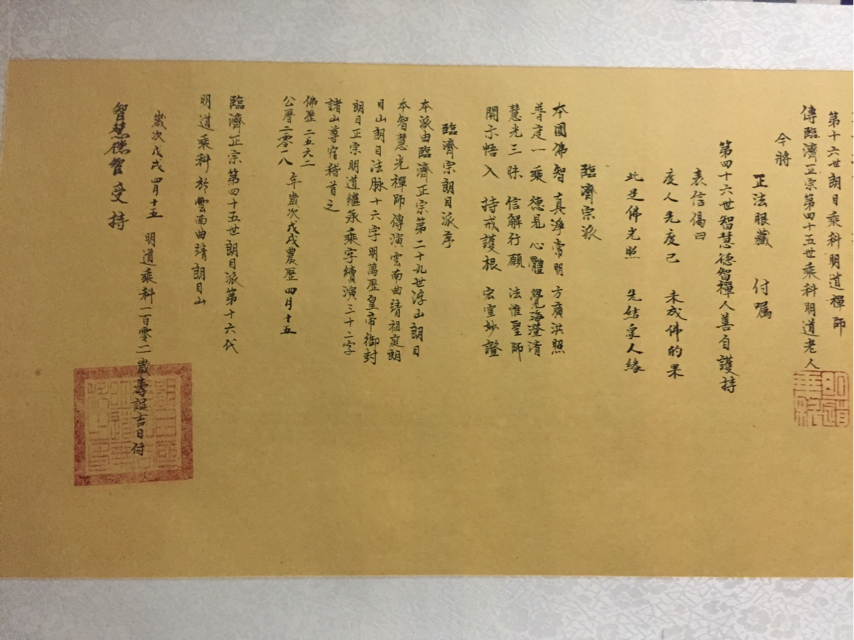 第十六世朗目乘科明道禪師
傳臨濟正宗第四十五世乘科明道老人
今將
正法眼藏 付囑
第四十六世智慧德智禪人善自護持
表信偈曰
度人先度己 未成佛的果
此是佛光照 先結眾人緣
臨濟宗派
本圓佛智 真淨常明 方廣洪照
普定一乘 德見心體 覺海澄清
慧光三昧 信解行願 法惟聖師
開示悟入 持戒護根 宏宣妙證
臨濟宗朗目派序
本派由臨濟正宗第二十九世浮山朗目
本智慧光禪師傳演雲南曲靖祖庭朗
目山朗目法脉十六字明萬歷皇帝御封
朗目正宗明道繼承乘字續演三十二字
諸山尊宿稽首之
佛歷二五六二
公曆二零一八 年歲次戊戌農歷四月十五
臨濟正宗第四十五世朗目派第十六代
明道乘科於雲南曲靖朗目山
歲次戊戌四月十五 明道乘科一百零二歲壽誕吉日付
智慧德智受持